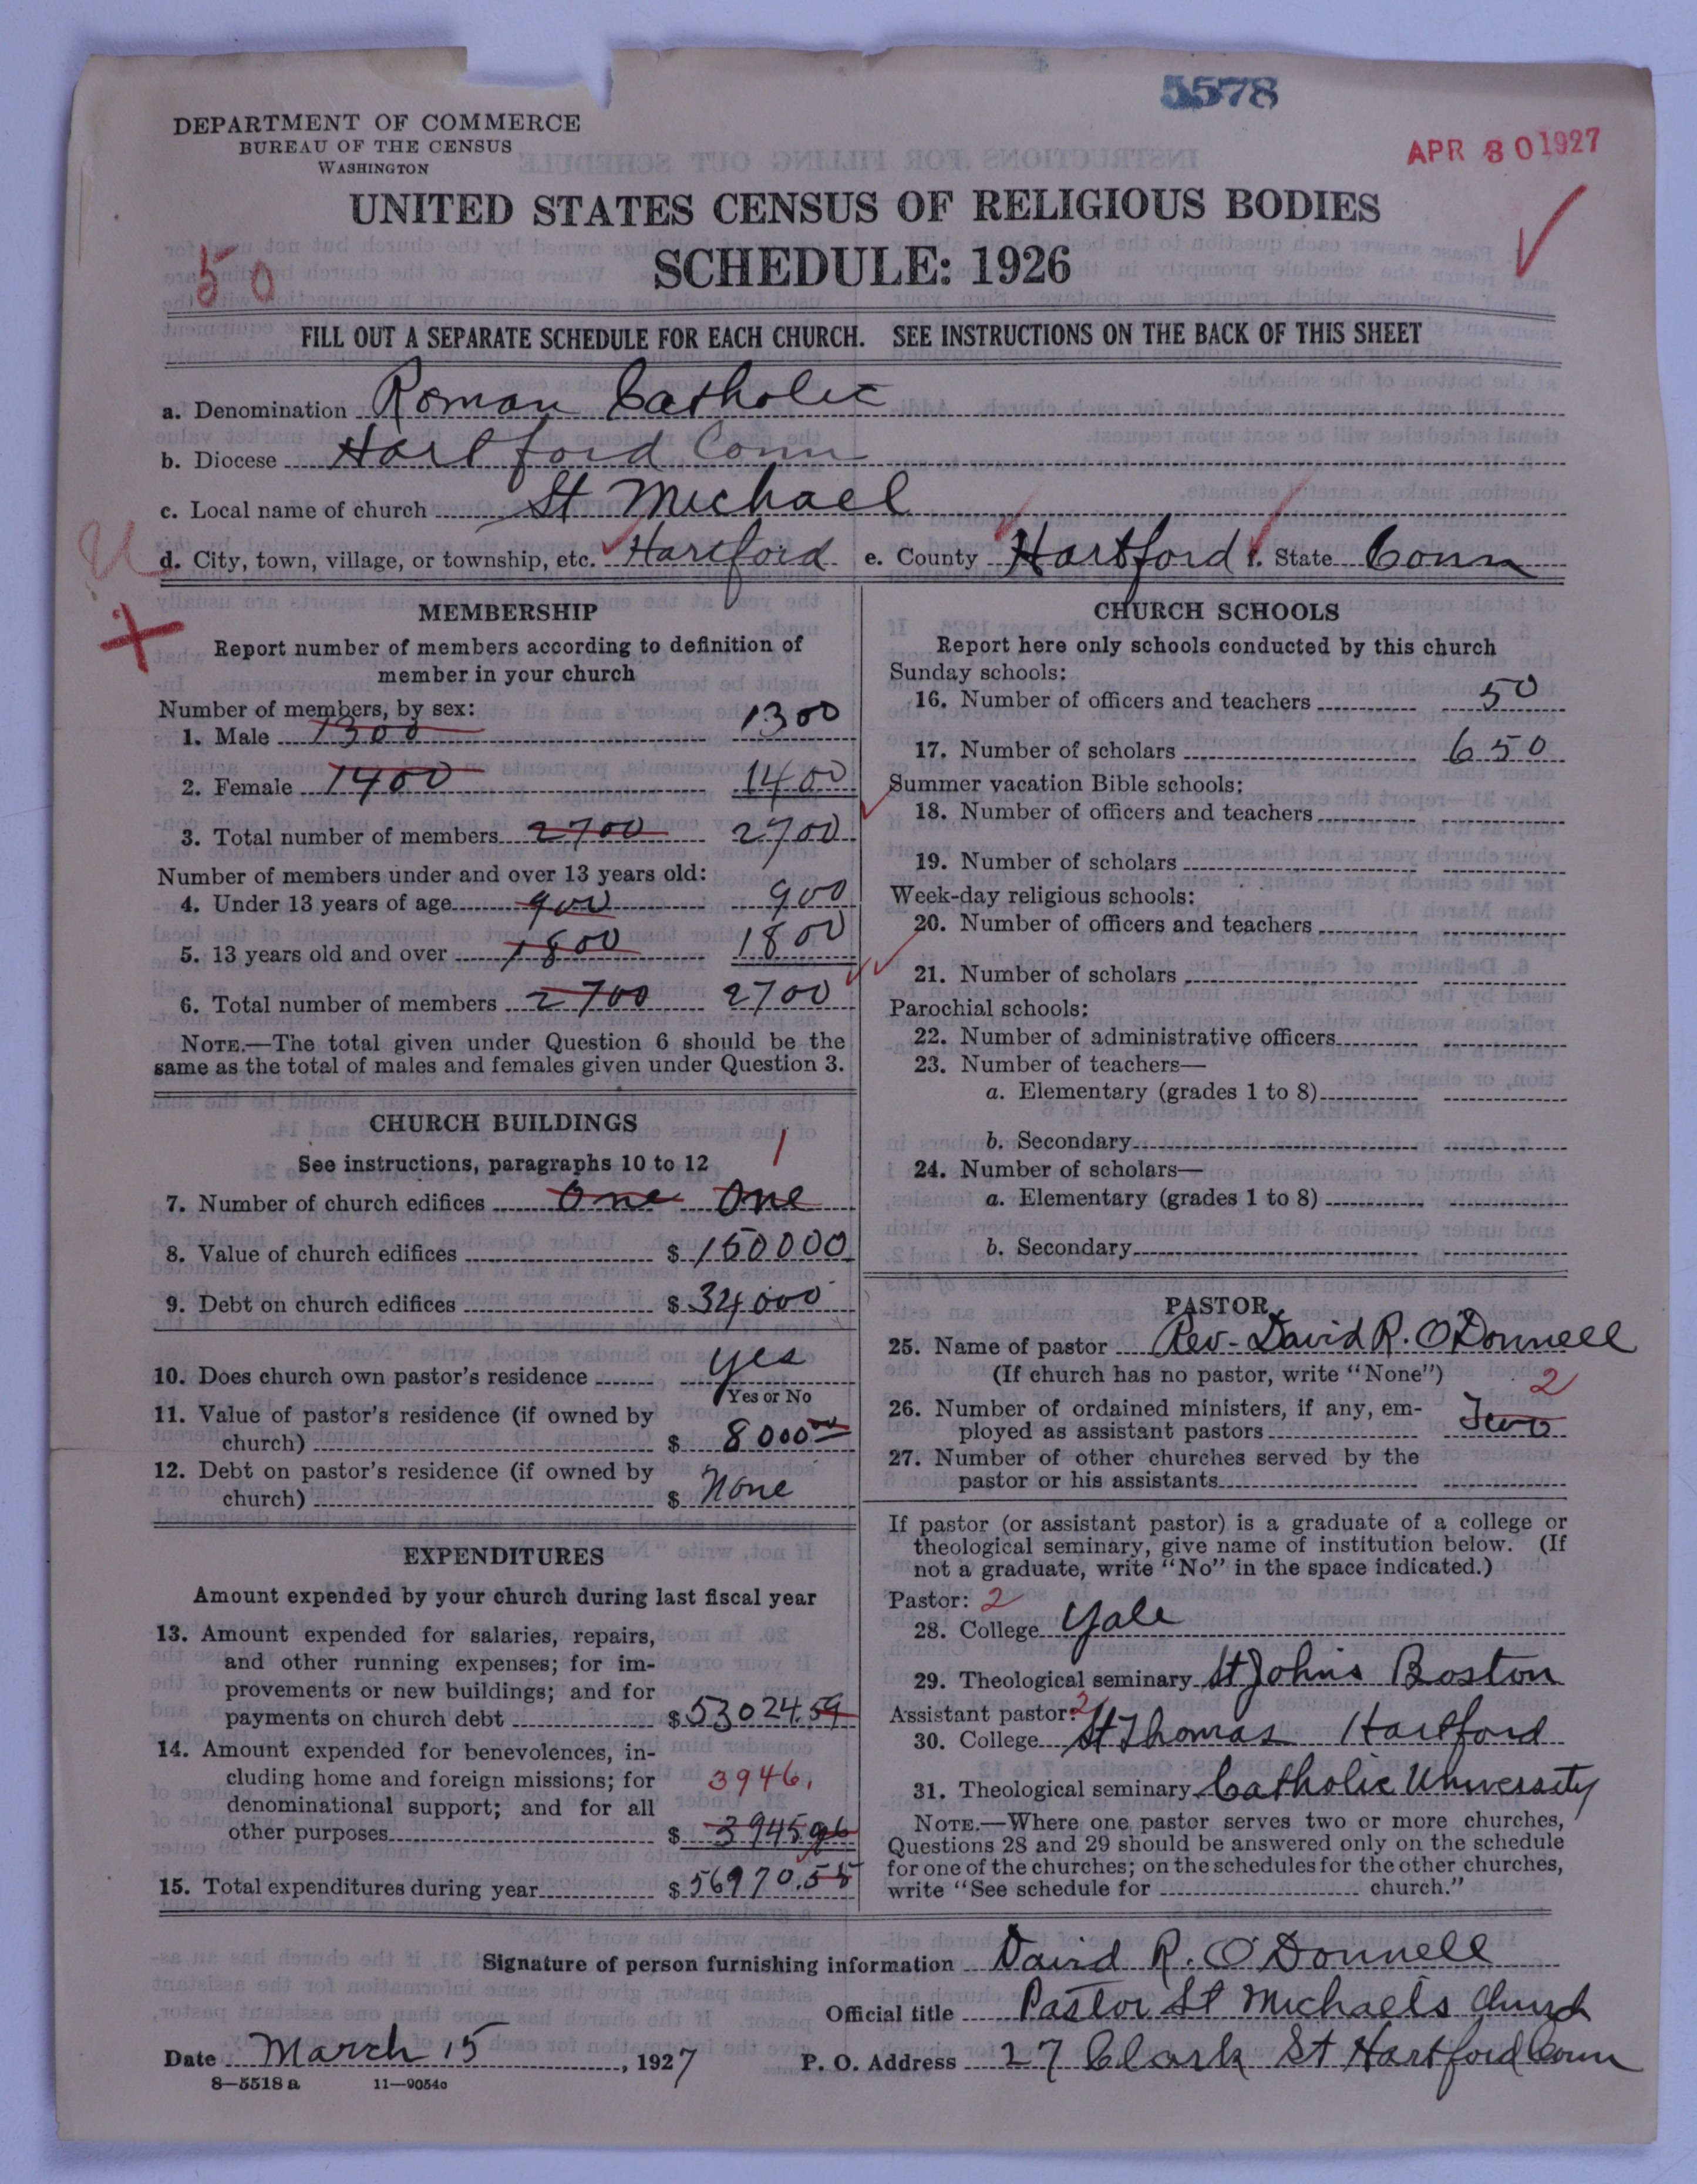 5578
DEPARTMENT OF COMMERCE
BUREAU OF THE CENSUS
WASHINGTON
APR 30 1927
UNITED STATES CENSUS OF RELIGIOUS BODIES
SCHEDULE: 1926
50
FILL OUT A SEPARATE SCHEDULE FOR EACH CHURCH. SEE INSTRUCTIONS ON THE BACK OF THIS SHEET
a. Denomination Roman Catholic
b. Diocese Hartford Conn
c. Local name of church St Michael
d. City, town, village, or township, etc. Hartford e. County Hartford f. State Conn
MEMBERSHIP
Report number of members according to definition of
member in your church
Number of members, by sex:
1. Male 1300 1300
2. Female 1400 1400
3. Total number of members 2700 2700
Number of members under and over 13 years old:
4. Under 13 years of age 900 900
5. 13 years old and over 1800 1800
6. Total number of members 2700 2700
NOTE.—The total given under Question 6 should be the
same as the total of males and females given under Question 3.
CHURCH BUILDINGS
See instructions, paragraphs 10 to 12 1
7. Number of church edifices One One
8. Value of church edifices $ 150000
9. Debt on church edifices $ 34000
10. Does church own pastor's residence yes
Yes or No
11. Value of pastor's residence (if owned by
church) $ 8000 00
12. Debt on pastor's residence (if owned by
church) $ None
EXPENDITURES
Amount expended by your church during last fiscal year
13. Amount expended for salaries, repairs,
and other running expenses; for im-
provements or new buildings; and for
payments on church debt $ 53024.59
14. Amount expended for benevolences, in-
cluding home and foreign missions; for 3946.
denominational support; and for all
other purposes $ 3945.96
15. Total expenditures during year $ 56970.55
CHURCH SCHOOLS
Report here only schools conducted by this church
Sunday schools:
16. Number of officers and teachers 50
17. Number of scholars 650
Summer vacation Bible schools:
18. Number of officers and teachers
19. Number of scholars
Week-day religious schools:
20. Number of officers and teachers
21. Number of scholars
Parochial schools:
22. Number of administrative officers
23. Number of teachers—
a. Elementary (grades 1 to 8)
b. Secondary
24. Number of scholars—
a. Elementary (grades 1 to 8)
b. Secondary
PASTOR
25. Name of pastor Rev- David R. O'Donnell
(If church has no pastor, write "None") 2
26. Number of ordained ministers, if any, em-
ployed as assistant pastors Two
27. Number of other churches served by the
pastor or his assistants
If pastor (or assistant pastor) is a graduate of a college or
theological seminary, give name of institution below. (If
not a graduate, write "No" in the space indicated.)
Pastor: 2
28. College Yale
29. Theological seminary St Johns Boston
Assistant pastor: 2
30. College St Thomas Hartford
31. Theological seminary Catholic University
NOTE.—Where one pastor serves two or more churches,
Questions 28 and 29 should be answered only on the schedule
for one of the churches; on the schedules for the other churches,
write "See schedule for church."
Signature of person furnishing information David R. O'Donnell
Official title Pastor St Michaels Church
Date March 15, 1927 P. O. Address 27 Clark St Hartford Conn
8—5518 a 11—9054c